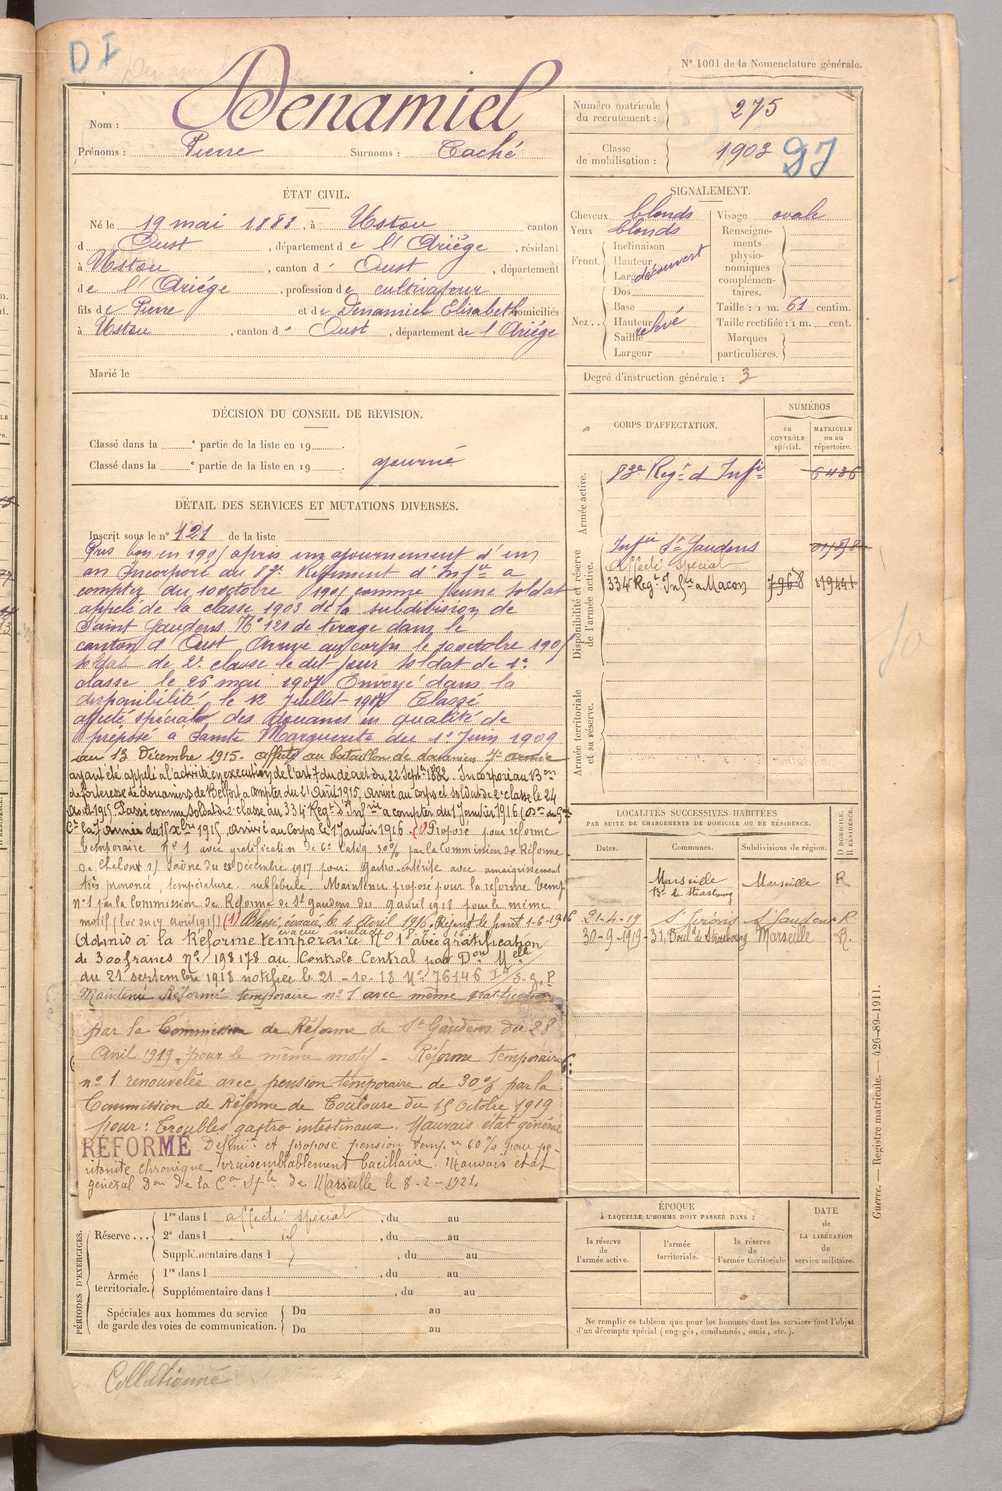 D I
N° 1001 de la Nomenclature générale.
Nom : Denamiel
Prénoms : Pierre Surnoms : Caché
Numéro matricule du recrutement : 275
Classe de mobilisation : 1903 DI
ÉTAT CIVIL.
Né le 19 mai 1883, à Ustou canton
d Oust, département de l'Ariége, résidant
à Ustou, canton d' Oust, département
de l'Ariége, profession de cultivateur
fils de Pierre et de Denamiel Elisabeth domiciliés
à Ustou, canton d' Oust, département de l'Ariége
Marié le
SIGNALEMENT.
Cheveux blonds
Yeux blonds
Front
Inclinaison
Hauteur
Larg découvert
Nez
Dos
Base
Hauteur relevé
Saillie
Largeur
Visage ovale
Renseignements physionomiques complémentaires.
Taille : 1 m. 61 centim.
Taille rectifiée : 1 m. cent.
Marques particulières.
Degré d'instruction générale : 3
DÉCISION DU CONSEIL DE REVISION.
Classé dans la e partie de la liste en 19
Classé dans la e partie de la liste en 19 ajourné
DÉTAIL DES SERVICES ET MUTATIONS DIVERSES.
Inscrit sous le n° 121 de la liste
Pris bon en 1905 après un ajournement d'un
an Incorporé au 83e Régiment d'Infie a
compter du 10 octobre 1905 comme jeune soldat
appelé de la classe 1903 de la subdivision de
Saint Gaudens N° 121 de tirage dans le
canton d'Oust Arrivé au corps le 10 octobre 1905
soldat de 2e classe le dit jour soldat de 1e
classe le 26 mai 1907 Envoyé dans la
disponibilité le 12 Juillet 1907 Classé
affecté spécial des douanes en qualité de
préposé à Sainte Marguerite du 1er Juin 1909
au 13 Décembre 1915. affecté au bataillon de douaniers 7e armée
ayant été appelé à l'activité en exécution de l'art 7 du décret du 22 Septe 1882. Incorporé au Bon
de forteresse de douaniers de Belfort à compter du 21 Avril 1915, arrivé au corps et soldat de 2e classe le 24
Avril 1915. Passé comme soldat de 2e classe au 334 Régt d'Infrie à compter du 1 Janvier 1916
arrivé au Corps le 1er Janvier 1916. (1) Proposé pour réforme
temporaire n° 1 avec gratification de 6e catég. 30% par la Commission de Réforme
de Chalon s/ Saône du 28 Décembre 1917 pour gastro-entérite avec amaigrissement
très prononcé, température subfébrile. Maintenu proposé pour la réforme temp.
n° 1 par la Commission de Réforme de St gaudens du 9 avril 1918 pour le même
motif (loc du 17 avril 1918) (1) Blessé évacué le 4 Avril 1916. Rejoint le front 1-6-1916
évacué malade
Admis à la Réforme temporaire N° 1 avec gratification
de 300 francs N° 198178 au Contrôle Central par Don Melle
du 21 septembre 1918 notifiée le 21-10-18 N° 76146
Maintenu Réformé temporaire n° 1 avec même gratification
par la Commission de Réforme de St Gaudens du 28
Avril 1919 pour le même motif - Réforme temporaire
n° 1 renouvelée avec pension temporaire de 30% par la
Commission de Réforme de Toulouse du 15 Octobre 1919
pour : Troubles gastro intestinaux. Mauvais état général
RÉFORMÉ Défini et proposé pension tempre 60% pour pé-
ritonite chronique vraisemblablement bacillaire. Mauvais état
général Don de la Con Sple de Marseille le 8-2-1921.
CORPS D'AFFECTATION.
NUMÉROS
DU CONTRÔLE spécial.
MATRICULE ou au répertoire.
Armée active.
83e Régt d'Infie 6436
Disponibilité et réserve de l'armée active.
Infie St Gaudens
Affecté Spécial
334 Régt Infie Macon 7968
Armée territoriale et sa réserve.
LOCALITÉS SUCCESSIVES HABITÉES
PAR SUITE DE CHANGEMENTS DE DOMICILE OU DE RÉSIDENCE.
Dates. Communes. Subdivisions de région. D DOMICILE. R RÉSIDENCE.
Marseille Bd de Strasbourg Marseille R
21-4-19 St Girons St Gaudens R
30-9-1919 31, Boul. de Strasbourg Marseille R.
PÉRIODES D'EXERCICES.
Réserve...
1re dans l affecté spécial, du au
2e dans l id, du au
Supplémentaire dans l, du au
Armée territoriale.
1re dans l, du au
Supplémentaire dans l, du au
Spéciales aux hommes du service de garde des voies de communication.
Du au
Du au
ÉPOQUE
À LAQUELLE L'HOMME DOIT PASSER DANS :
la réserve de l'armée active.
l'armée territoriale.
la réserve de l'armée territoriale
DATE de LA LIBÉRATION du service militaire.
Ne remplir ce tableau que pour les hommes dont les services font l'objet
d'un décompte spécial (engagés, condamnés, omis, etc.).
Guerre. — Registre matricule. — 426-89-1911.
Collationné